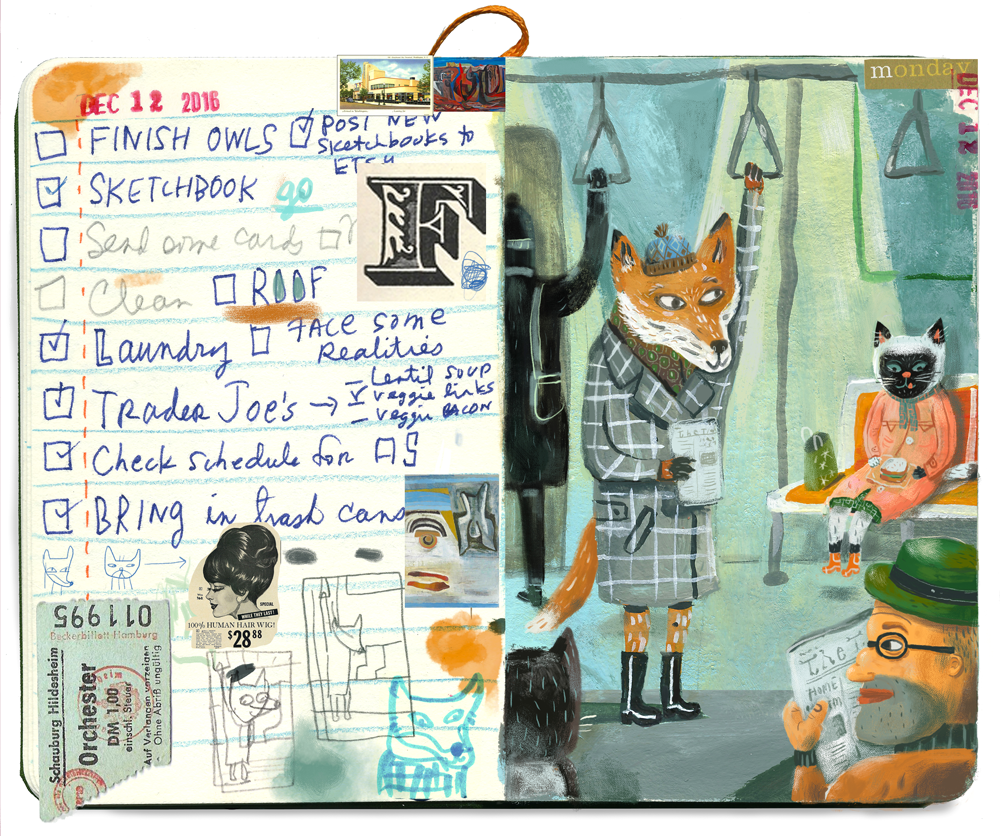 DEC 12 2016
monday
DEC 12 2016
FINISH OWLS
POST NEW
Sketchbooks to
SKETCHBOOK go
Send some cards
F
Clean ROOF
Laundry
FACE some
Realities
Trader Joe's →
Lentil SOUP
veggie links
veggie BACON
Check schedule for AS
BRING in trash cans
SPECIAL
WHILE THEY LAST!
100% HUMAN HAIR WIG!
$28 88
011995
Schauburg Hildesheim
Orchester
DM 1,00
einschl. Steuer
Auf Verlangen vorzeigen
Ohne Abriß ungültig
The
HOME